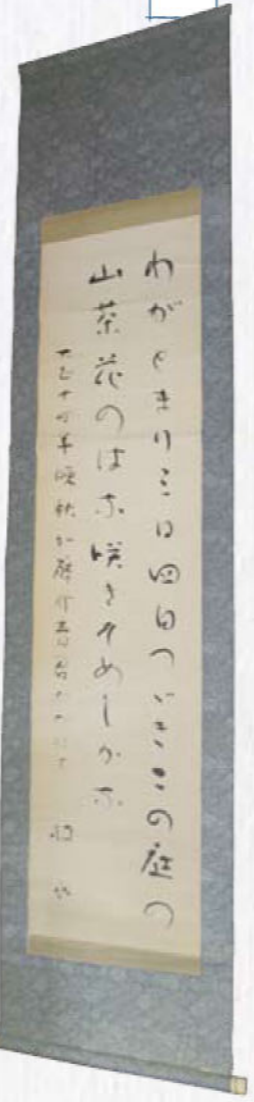 わがとまり三日四日つゞきこの庭の
山茶花のはな咲きそめしかな
大正十四年晩秋於
牧水